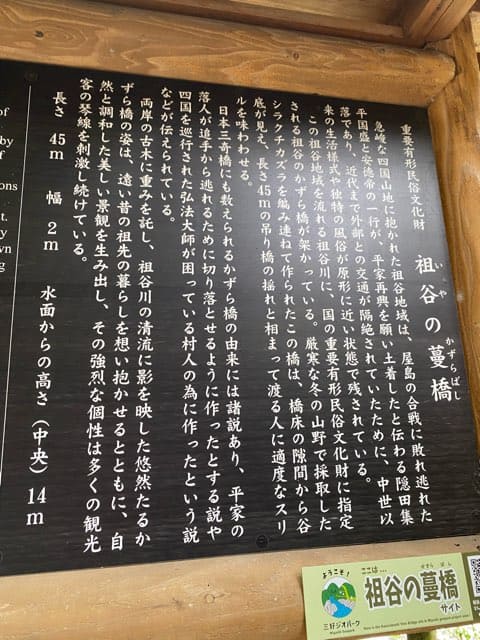 重要有形民俗文化財
祖谷の蔓橋
いや
かずらばし
急峻な四国山地に抱かれた祖谷地域は、屋島の合戦に敗れ逃れた
平国盛と安徳帝の一行が、平家再興を願い土着したと伝わる隠田集
落であり、近代まで外部との交通が隔絶されていたために、中世以
来の生活様式や独特の風俗が原形に近い状態で残されている。
この祖谷地域を流れる祖谷川に、国の重要有形民俗文化財に指定
される祖谷のかずら橋が架かっている。厳寒な冬の山野で採取した
シラクチカズラを編み連ねて作られたこの橋は、橋床の隙間から谷
底が見え、長さ45mの吊り橋の揺れと相まって渡る人に適度なスリ
ルを味わわせる。
日本三奇橋にも数えられるかずら橋の由来には諸説あり、平家の
落人が追手から逃れるために切り落とせるように作ったとする説や
四国を巡行された弘法大師が困っている村人の為に作ったという説
などが伝えられている。
両岸の古木に重みを託し、祖谷川の清流に影を映した悠然たるか
ずら橋の姿は、遠い昔の祖先の暮らしを想い抱かせるとともに、自
然と調和した美しい景観を生み出し、その強烈な個性は多くの観光
客の琴線を刺激し続けている。
長さ 45m 幅 2m 水面からの高さ（中央）14m
ようこそ！
三好ジオパーク
Miyoshi Geopark
ここは…
祖谷の蔓橋
かずら ばし
サイト